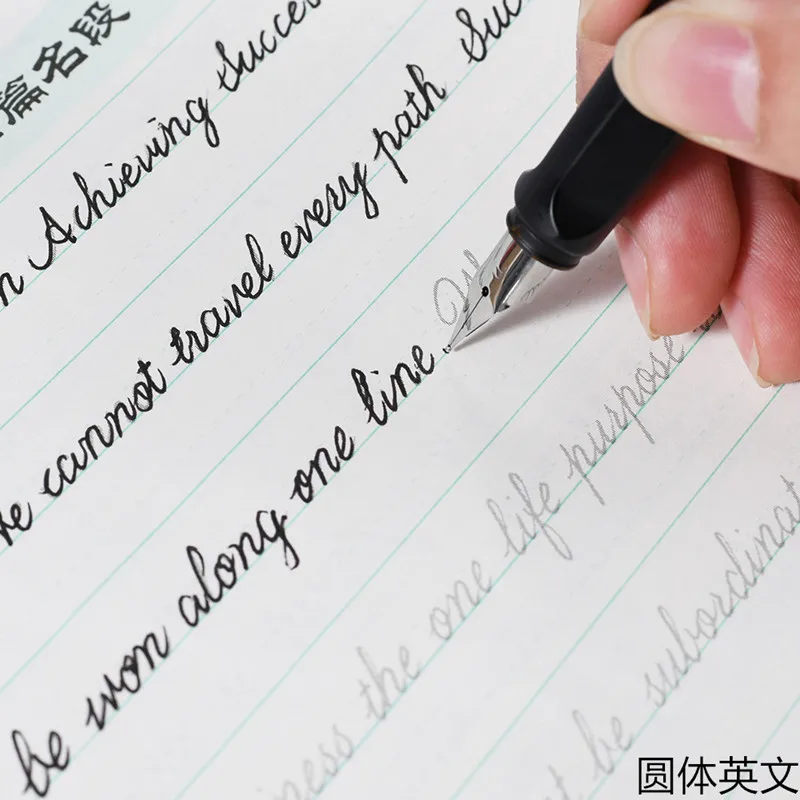 篇名段
Achieving Success
cannot travel every path
be won along one line.
the one life purpose
be subordinat
圆体英文